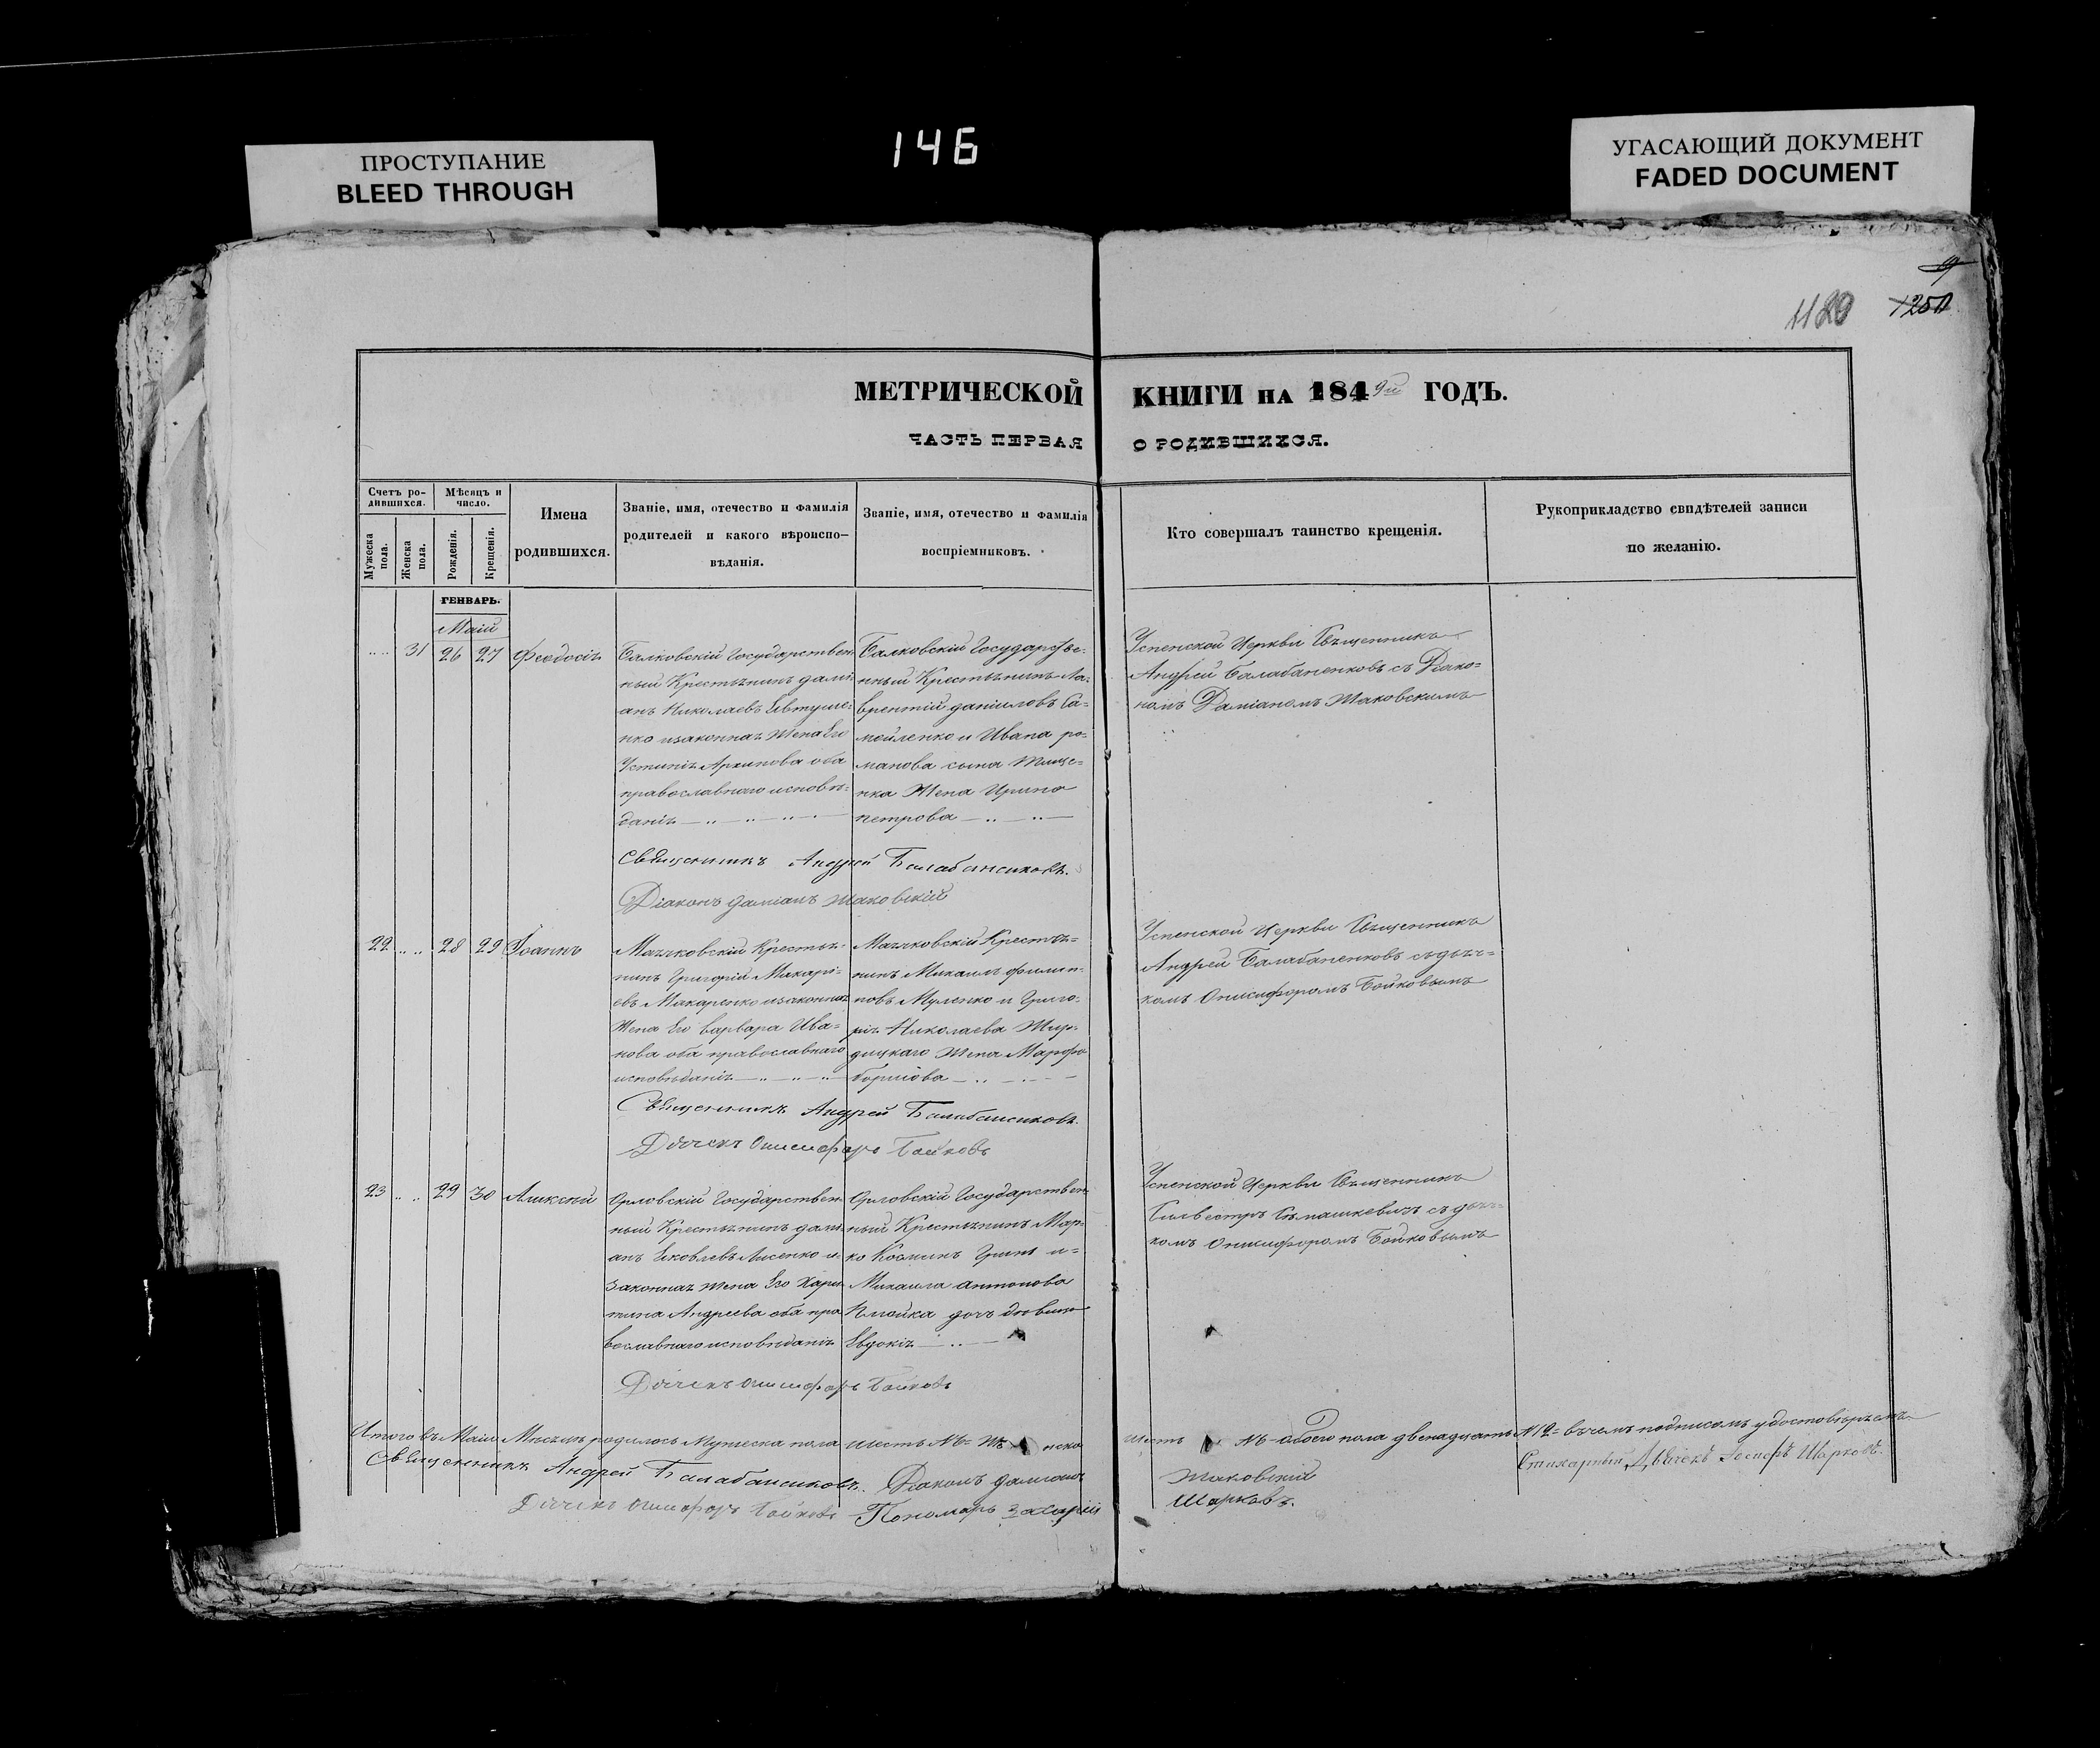 ПРОСТУПАНИЕ
BLEED THROUGH
146
УГАСАЮЩИЙ ДОКУМЕНТ
FADED DOCUMENT
1120
1250
МЕТРИЧЕСКОЙ КНИГИ на 1849й ГОДЪ.
ЧАСТЬ ПЕРВАЯ О РОДИВШИХСЯ.
Счетъ родившихся.
Мужеска пола.
Женска пола.
Мѣсяцъ и число.
Рожденія.
Крещенія.
Имена
родившихся.
Званіе, имя, отечество и фамилія
родителей и какого вѣроиспо-
вѣданія.
Званіе, имя, отечество и фамилія
воспріемниковъ.
Кто совершалъ таинство крещенія.
Рукоприкладство свидѣтелей записи
по желанію.
ГЕНВАРЬ.
Маій
31 26 27 Феодосія
Балковскій Государствен
ный Крестьянинъ дамі
анъ Николаевъ Евтуше-
нко изаконная Жена Его
Устинія Архипова оба
православнаго исповѣ-
данія
Балковскій Государстве-
нный Крестьянинъ Ла-
врентій даніиловъ Са-
мойленко и Ивана ро-
манова сына Тище-
нка Жена Ирина
петрова
Успенской Церкви Священникъ
Андрей Балабаненковъ съ Діако-
номъ Даміаномъ Жаковскимъ
Священникъ Андрей Балабаненковъ.
Діаконъ даміанъ Жаковскій
22 28 29 Іоаннъ
Маячковскій Крестья-
нинъ Григорій Макарі-
евъ Макаренко изаконная
Жена Его варвара Ива-
нова оба православнаго
исповѣданія
Маячковскій Крестья-
нинъ Михаилъ филип-
повъ Муленко и Григо-
рія Николаева
Жена Марфа
Успенской Церкви Священникъ
Андрей Балабаненковъ съ дьяч-
комъ Онисифоромъ Бойковымъ
Священникъ Андрей Балабаненковъ.
Дьячекъ Онисифоръ Бойковъ
23 29 30 Алексѣй
Орловскій Государствен
ный Крестьянинъ дамі
анъ Яковлевъ Лисенко и
Законная Жена Его Хари
тина Андреева оба пра
вославнаго исповѣданія
Орловскій Государствен
ный Крестьянинъ Мар-
ко Козминъ Гринь и-
Михаила антонова
дочь дѣвица
Евдокія
Успенской Церкви Священникъ
Сильвестръ Сѣмашкевичъ съ дьяч-
комъ Онисифоромъ Бойковымъ
Дьячекъ Онисифоръ Бойковъ
Итого въ Маіи Мѣсяцѣ родилось Мужеска пола шесть № Женска шесть № обоего пола двенадцать №12 въ чемъ подписомъ удостовѣряемъ
Священникъ Андрей Балабаненковъ. Діаконъ даміанъ Жаковскій
Стихарный Дьячекъ Шарковъ.
Дьячекъ Онисифоръ Бойковъ Пономарь Захарій Шарковъ.